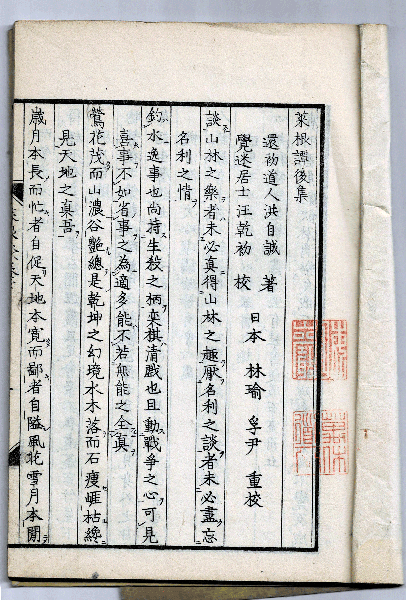 菜根譚後集
還初道人洪自誠 著
覺迷居士汪乾初 校
日本 林瑜 孚尹 重校
談山林之樂者未必真得山林之趣厭名利之談者未必盡忘
名利之情
釣水逸事也尚持生殺之柄奕棋清戲也且動戰爭之心可見
喜事不如省事之為適多能不若無能之全真
鶯花茂而山濃谷艷總是乾坤之幻境水木落而石瘦崕枯纔
見天地之真吾
歲月本長而忙者自促天地本寬而鄙者自隘風花雪月本閒